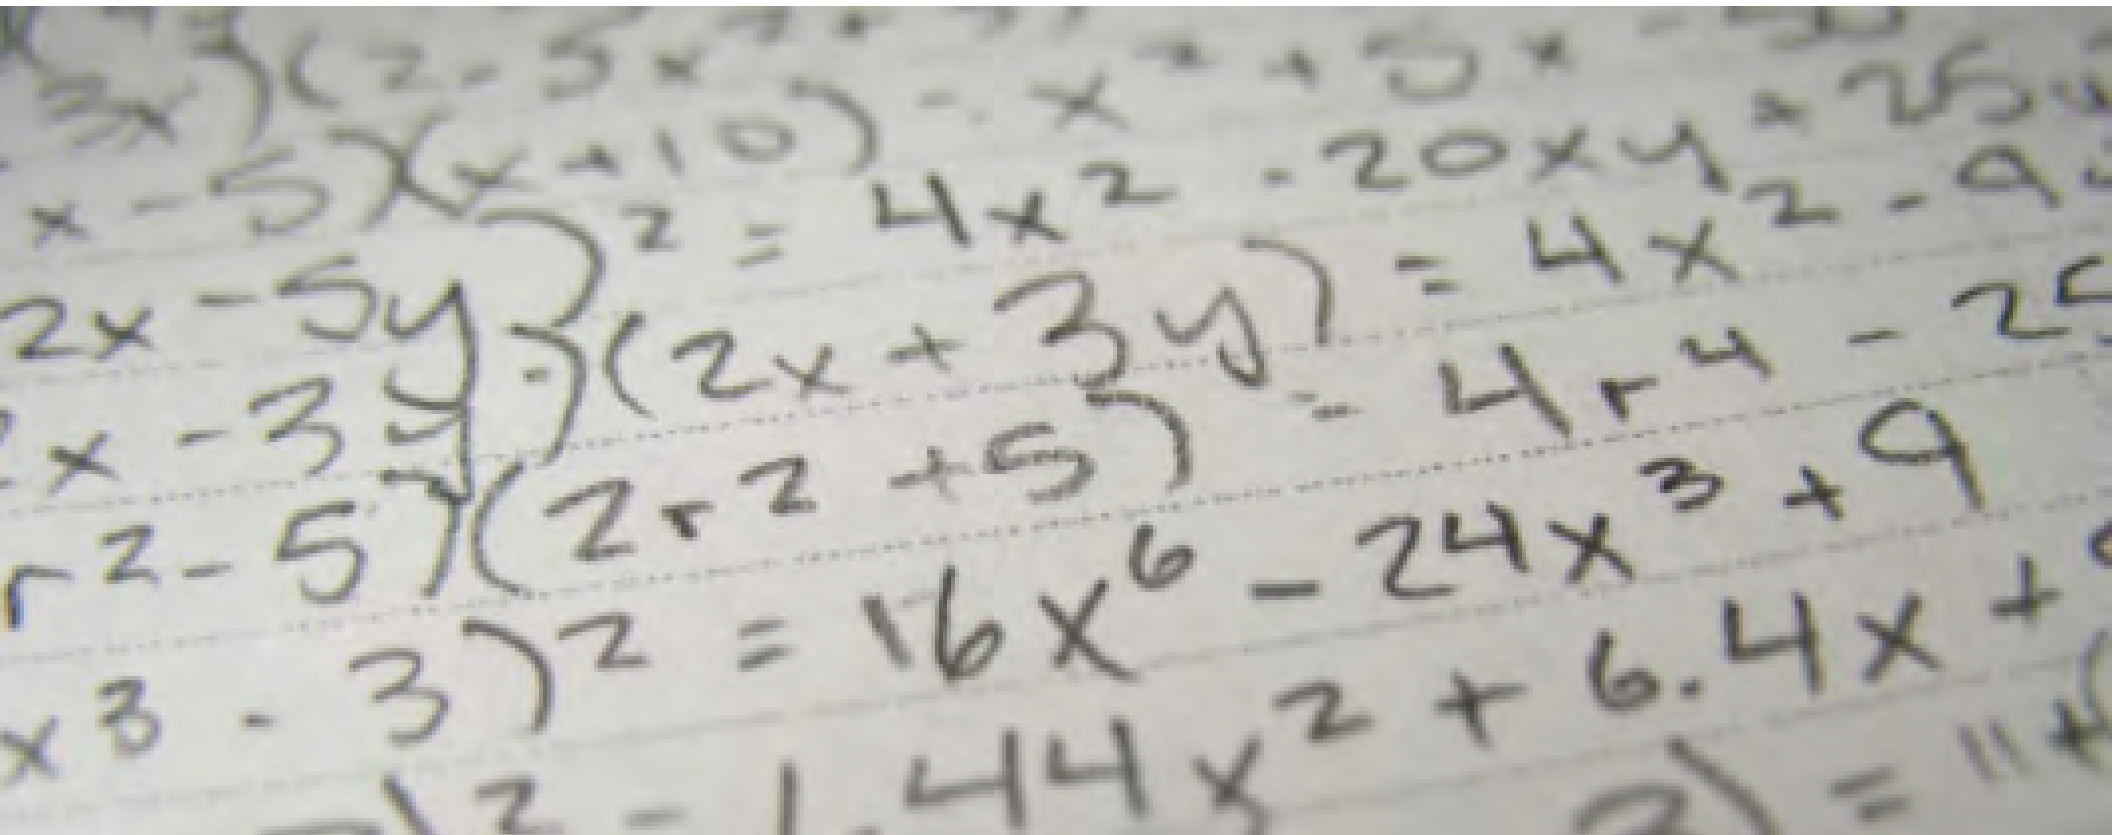 3x)(2-5x
x-5)(x+10) = x²+5x-50
2x-5y)² = 4x²-20xy+25y
2x-3y)·(2x+3y) = 4x²-9y
r²-5)(2r²+5) = 4r⁴-25
x³-3)²=16x⁶-24x³+9
)²=1.44x²+6.4x+
) = "+(